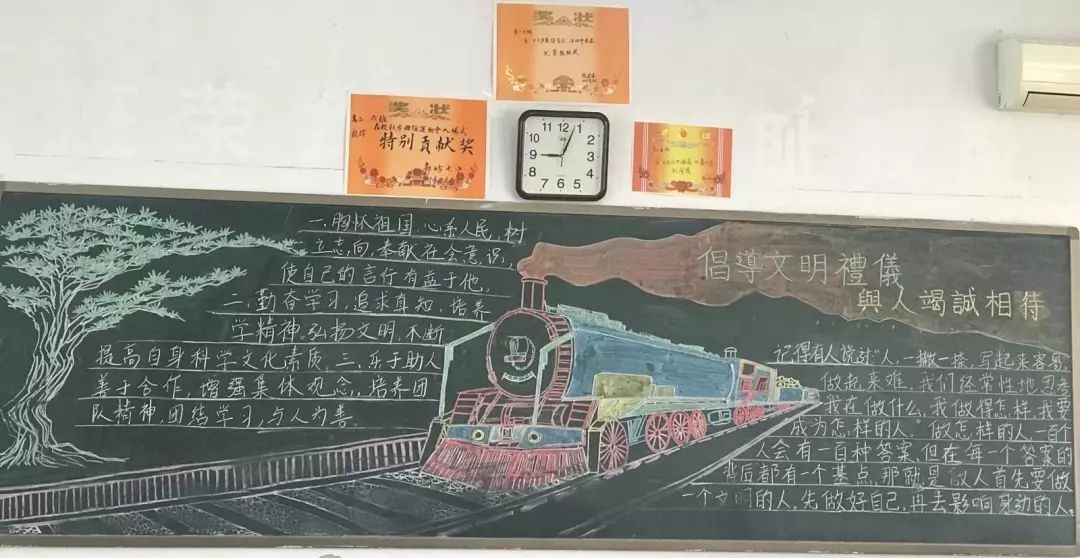 奖状
奖状
高二、六班
特别貢献奖
12
11
1
10
2
9
3
8
4
7
6
5
一.胸怀祖国,心系人民,树
立志向,奉献社会意识,
使自己的言行有益于他。
二、勤奋学习,追求真知,培养
学精神。弘扬文明,不断
提高自身科学文化素质.三、乐于助人
善于合作,增强集体观念,培养团
队精神,团结学习,与人为善.
倡導文明禮儀
與人竭誠相待
记得有人说过"人,一撇一捺,写起来容易,
做起来难,我们经常性地思考
我在做什么,我做得怎样,我要
成为怎样的人。"做怎样的人,一百个
人会有一百种答案,但在每一个答案的
背后都有一个基点,那就是做人首先要做
一个文明的人。先做好自己,再去影响身边的人。